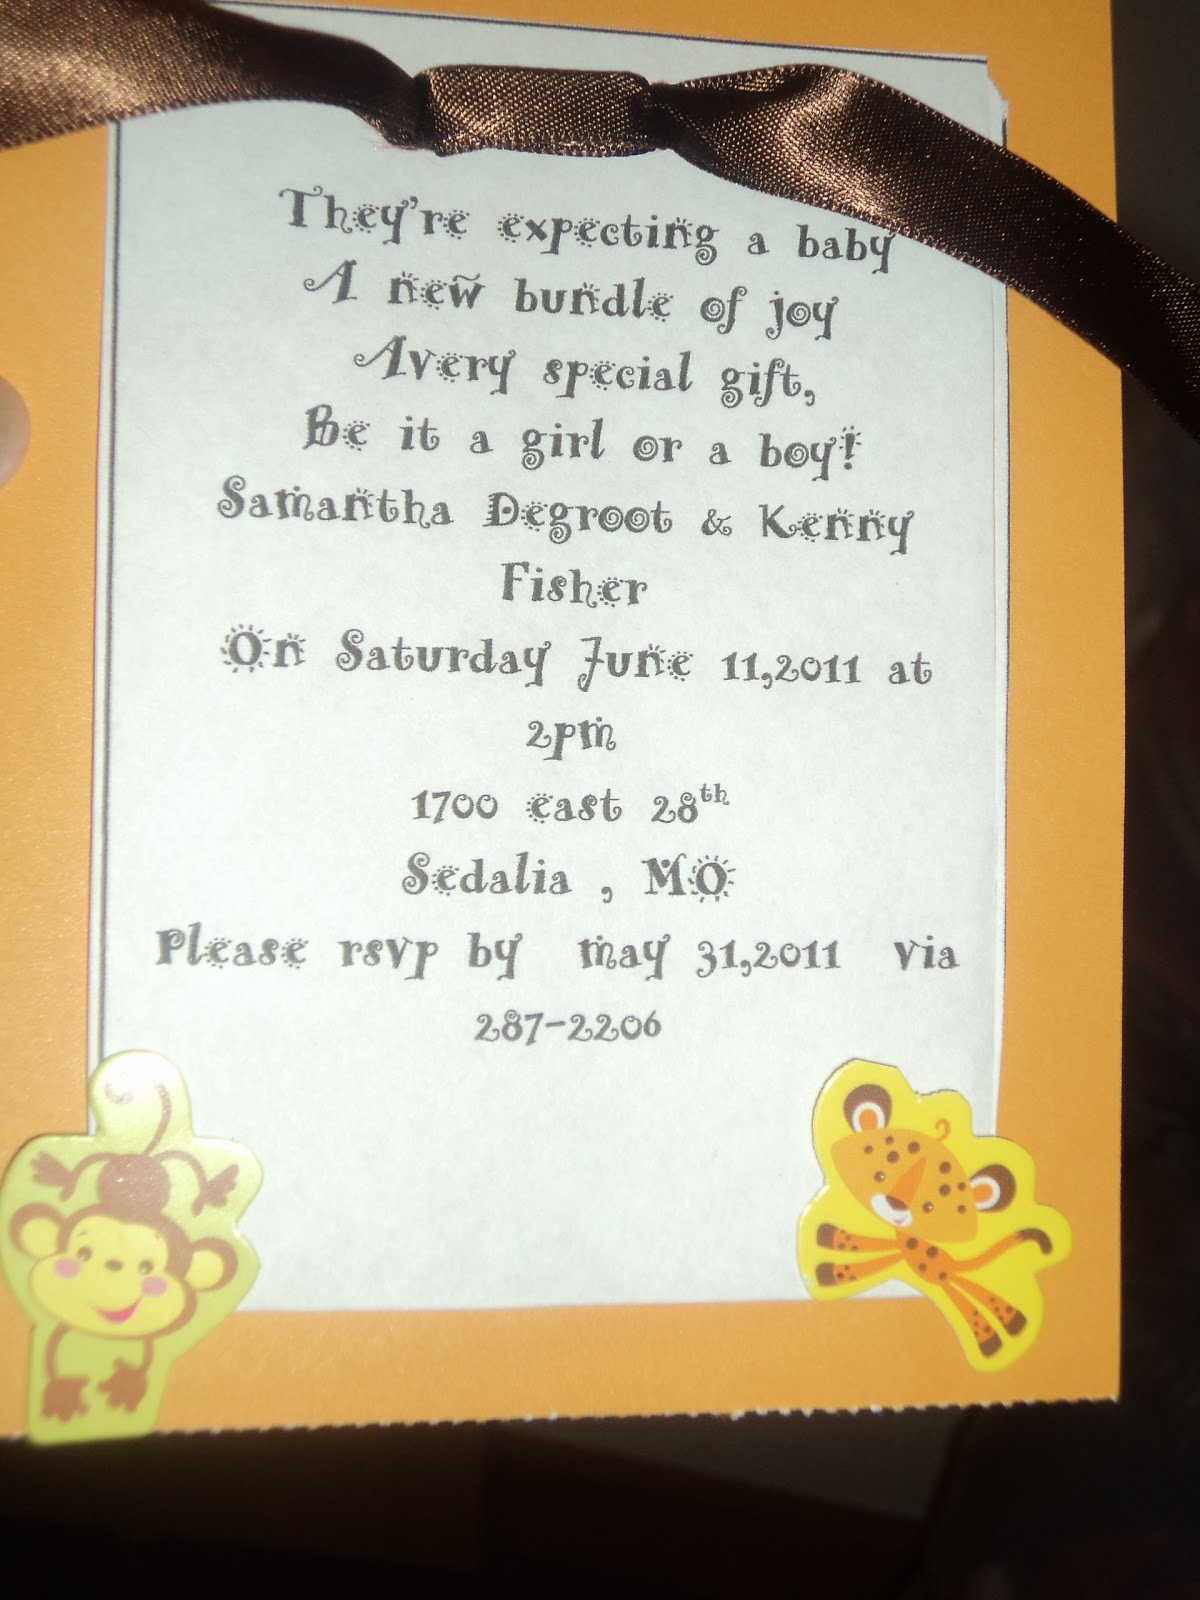 They're expecting a baby
A new bundle of joy
Avery special gift,
Be it a girl or a boy!
Samantha Degroot & Kenny
Fisher
On Saturday June 11,2011 at
2pm
1700 east 28th
Sedalia , MO
Please rsvp by may 31,2011 via
287-2206